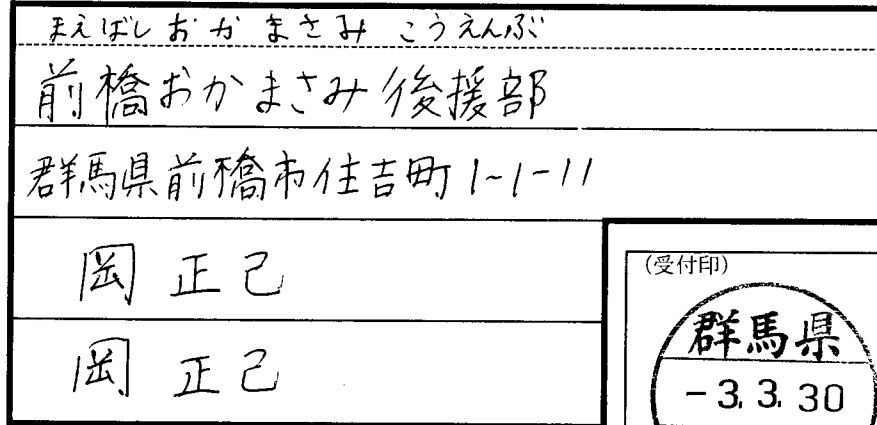 まえばしおかまさみ こうえんぶ
前橋おかまさみ後援部
群馬県前橋市住吉町1-1-11
岡 正己
岡 正己
(受付印)
群馬県
-3.3.30